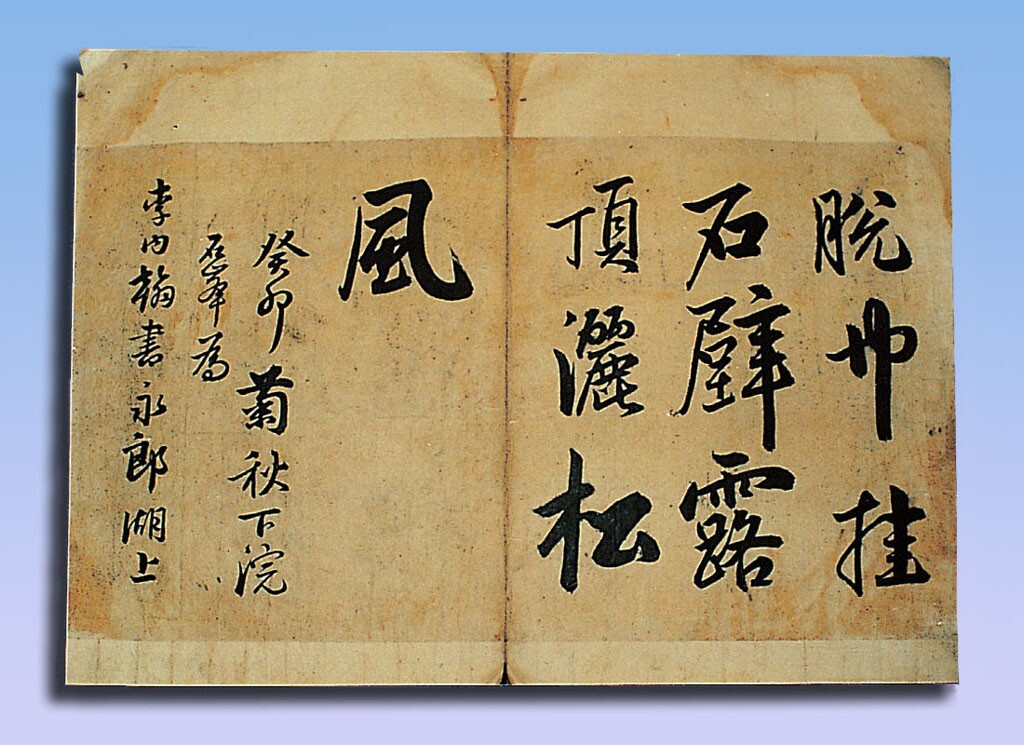 脫巾挂
石壁露
頂灑松
風
癸卯菊秋下浣
石峯為
李內翰書永郎湖上